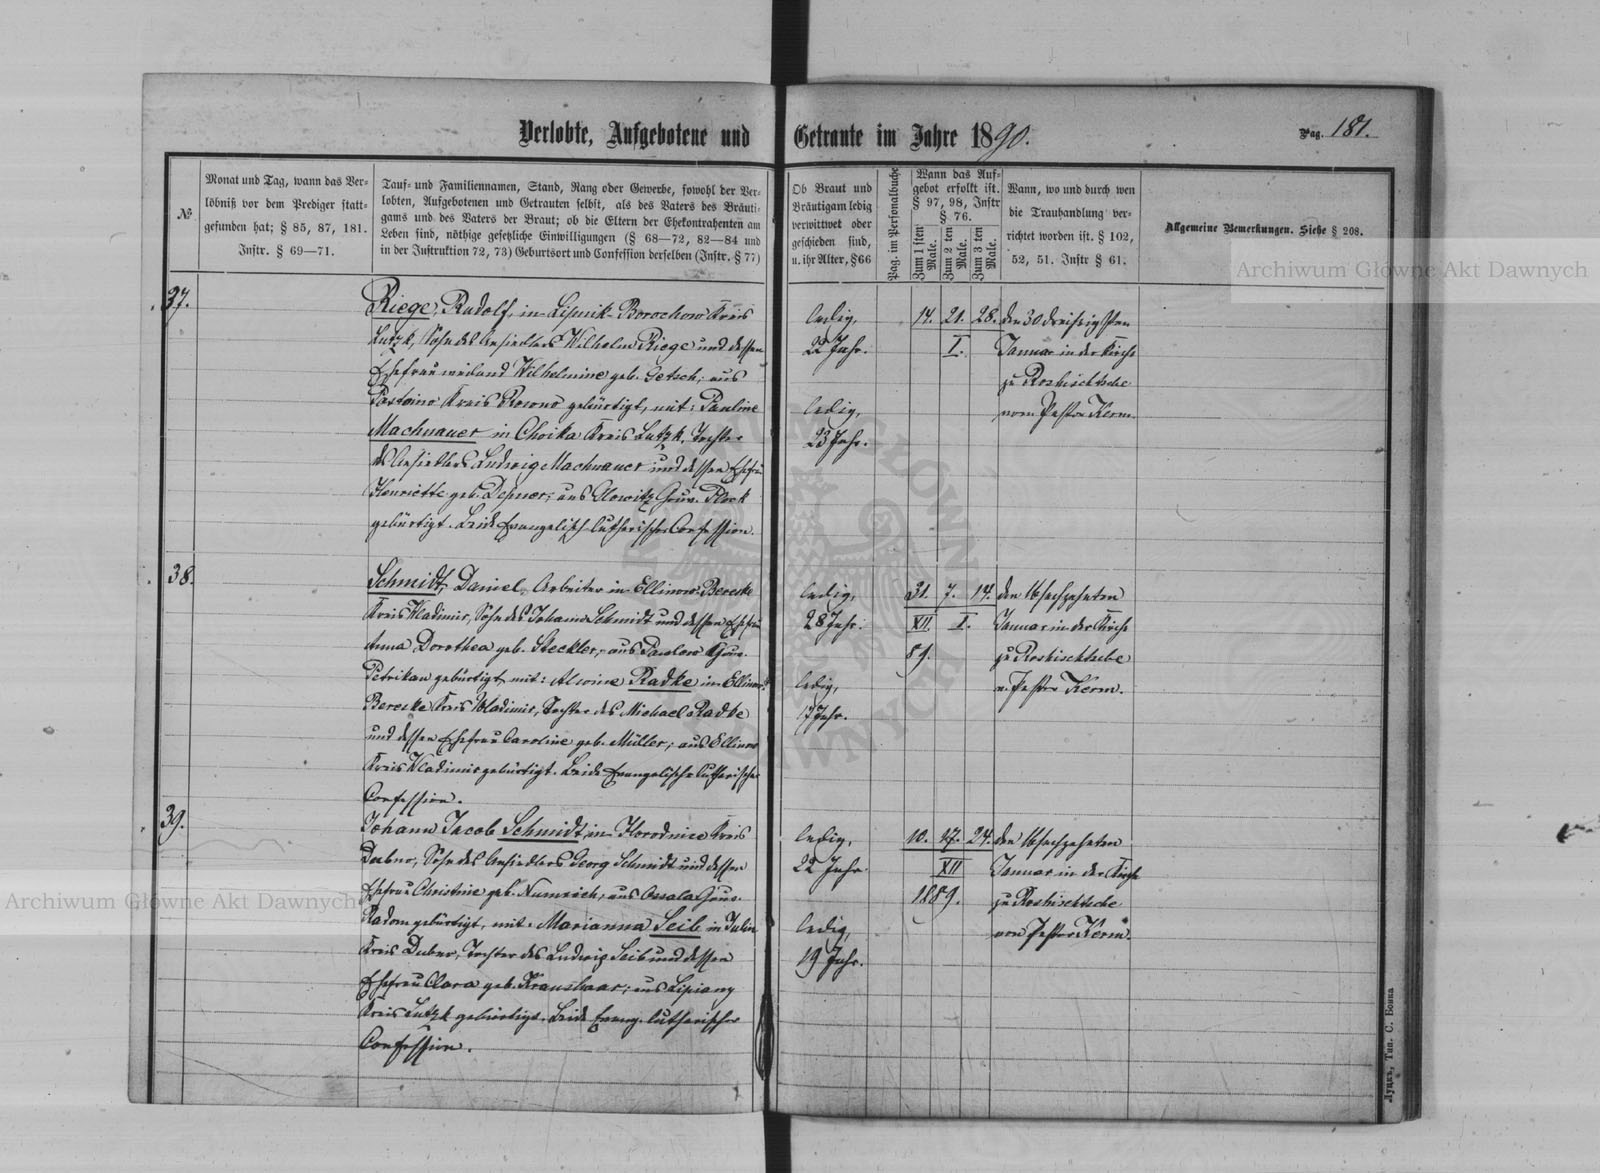 Verlobte, Aufgebotene und Getraute im Jahre 1890.
Pag. 181.
№
Monat und Tag, wann das Ver-
löbniß vor dem Prediger statt-
gefunden hat; § 85, 87, 181.
Instr. § 69—71.
Tauf- und Familiennamen, Stand, Rang oder Gewerbe, sowohl der Ver-
lobten, Aufgebotenen und Getrauten selbst, als des Vaters des Bräuti-
gams und des Vaters der Braut; ob die Eltern der Ehekontrahenten am
Leben sind, nöthige gesetzliche Einwilligungen (§ 68—72, 82—84 und
in der Instruktion 72, 73) Geburtsort und Confession derselben (Instr. § 77)
Ob Braut und
Bräutigam ledig
verwittwet oder
geschieden sind,
u. ihr Alter, §66
Pag. im Personalbuche
Wann das Auf-
gebot erfolgt ist.
§ 97, 98, Instr
§ 76.
Zum 1 sten Male.
Zum 2 ten Male.
Zum 3 ten Male.
Wann, wo und durch wen
die Trauhandlung ver-
richtet worden ist. § 102,
52, 51. Instr § 61.
Allgemeine Bemerkungen. Siehe § 208.
37.
Riege, Rudolf, in Lipnik-Borochow Kreis
Lutzk, Sohn des Ansiedlers Wilhelm Riege und dessen
Ehefrau weiland Wilhelmine geb. Getsch; aus
Kreis Rowno gebürtigt, mit: Pauline
Machnauer in Choika Kreis Lutzk, Tochter
des Ansiedlers Ludwig Machnauer und dessen Ehefrau
Henriette geb. Depner; aus Gouv. Plock
gebürtigt. Beide Evangelisch lutherischer Confession.
ledig,
22 Jahr.
ledig,
23 Jahr.
14. 21. 28.
I.
den 30 dreißigsten
Januar in der Kirche
zu Roshischtsche
vom Pastor Kerm.
38.
Schmidt, Daniel, Arbeiter in Ellinow-Bereske
Kreis Wladimir, Sohn des Johann Schmidt und dessen Ehefrau
Anna Dorothea geb. Steckler; aus Pawlow Gouv.
Petrikau gebürtigt mit: Alwine Radke in Ellinow-
Bereske Kreis Wladimir, Tochter des Michael Radke
und dessen Ehefrau Caroline geb. Müller; aus Ellinow
Kreis Wladimir gebürtigt. Beide Evangelisch lutherischer
Confession.
ledig,
28 Jahr.
ledig,
17 Jahr.
31. 7. 14.
XII. I.
89.
den 16 sechzehnten
Januar in der Kirche
zu Roshischtsche
v. Pastor Kerm.
39.
Johann Jacob Schmidt, in Horodnice Kreis
Dubno, Sohn des Ansiedlers Georg Schmidt und dessen
Ehefrau Christine geb. Numrich; aus Ossala Gouv.
Radom gebürtigt, mit: Marianna Seib in
Kreis Dubno, Tochter des Ludwig Seib und dessen
Ehefrau Clara geb. Kraushaar; aus Lipiany
Kreis Lutzk gebürtigt. Beide Evang. lutherischer
Confession.
ledig,
22 Jahr
ledig,
19 Jahr.
10. 17. 24.
XII
1889.
den 16 sechzehnten
Januar in der Kirche
zu Roshischtsche
von Pastor Kerm.
Луцкъ, Тип. С. Бонка
Archiwum Główne Akt Dawnych
Archiwum Główne Akt Dawnych